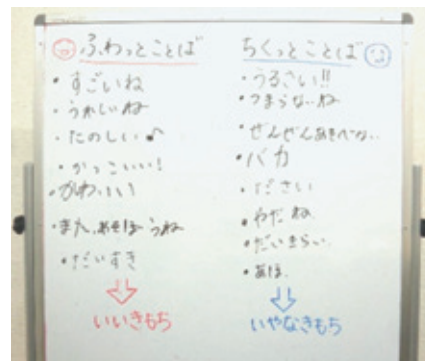 ふわっとことば
・すごいね
・うれしいね
・たのしい♪
・かっこいい!
・かわいい
・また、あそぼうね
・だいすき
⇩
いいきもち
ちくっとことば
・うるさい!!
・つまらないね
・ぜんぜんあそべない
・バカ
・ださい
・やだね
・だいきらい
・あほ
⇩
いやなきもち